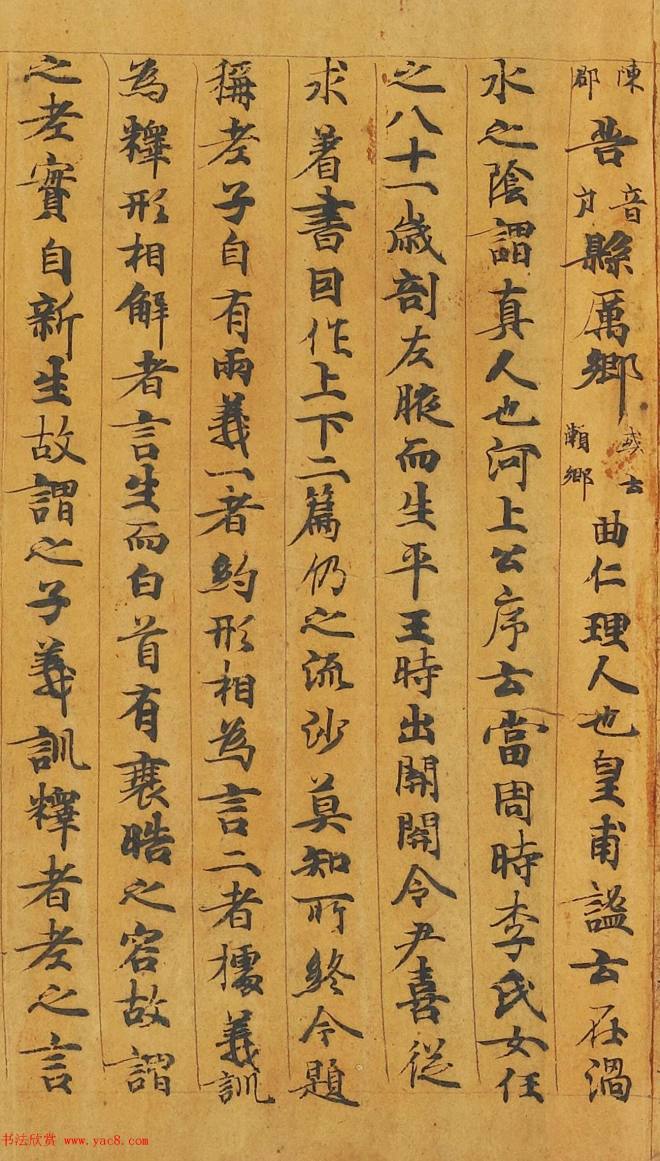 陳郡苦音縣厲鄉或云瀬鄉曲仁理人也皇甫謐云在渦
水之陰謂真人也河上公序云當周時李氏女任
之八十一歲剖左腋而生平王時出關關令尹喜從
求著書因作上下二篇仍之流沙莫知所終今題
稱老子自有兩義一者約形相為言二者據義訓
為釋形相解者言生而白首有衰晧之容故謂
之老實自新生故謂之子義訓釋者老之言
书法欣赏 www.yac8.com